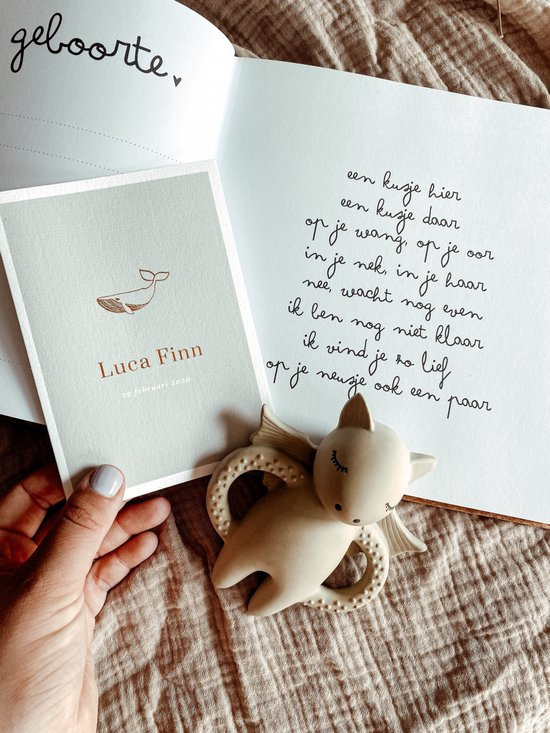 geboorte
Luca Finn
19 februari 2020
een kusje hier
een kusje daar
op je wang, op je oor
in je nek, in je haar
nee, wacht nog even
ik ben nog niet klaar
ik vind je zo lief
op je neusje ook een paar